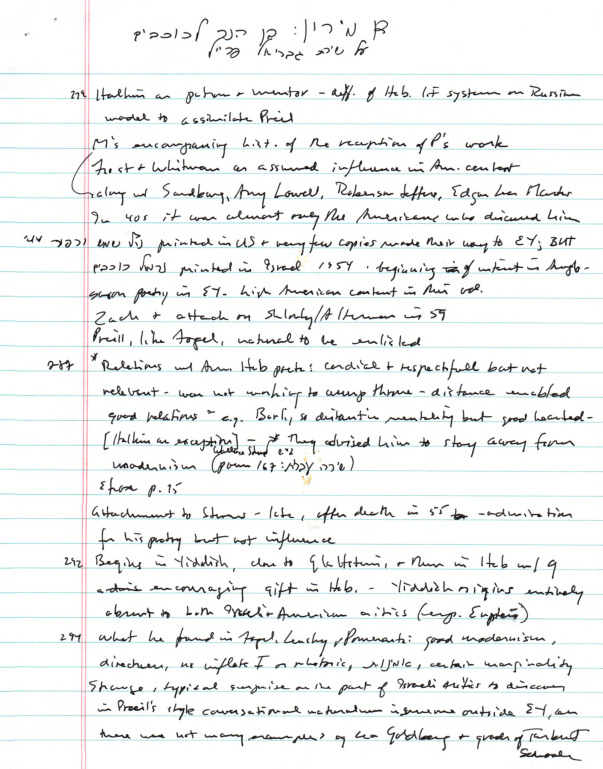 מירון: בן הנכר לכוכבים
על שירת גבריאל פרייל
Halkin as patron + mentor – diff. of Heb. lit system on Russian
model to assimilate Preil
M's encompassing hist. of the reception of P's work
Frost + Whitman as assumed influence in Am. context
along w/ Sandburg, Amy Lowell, Robinson Jeffers, Edgar Lee Masters
In 40s it was almost only the Americans who discussed him
printed in US + very few copies made their way to EY; BUT
printed in Israel 1954. beginning of interest in Anglo-
saxon poetry in EY. high American content in this vol.
Zach + attack on Shlonsky/Alterman in 59
Preill, like Fogel, natural to be enlisted
287 * Relations w/ Am Heb poets: cordial + respectfull but not
relevant – was not working to usurp throne – distance enabled
good relations – e.g. Bavli, so distant in mentality but good hearted –
[Halkin an exception] – * They advised him to stay away from
modernism (poem 167:
Efros p. 15
Attachment to Stevens – late, after death in 55 – admiration
for his poetry but not influence
292 Begins in Yiddish, close to Glatstein, + then in Heb w/ 9
encouraging gift in Heb. – Yiddish origins entirely
absent to both Israeli + American critics (esp.
294 what he found in Fogel, Lensky, Pomerantz: good modernism,
directness, no inflated I or rhetoric, certain marginality
Strange, typical surprise on the part of Israeli critics to discover
in Preil's style conversational naturalism in genuine outside EY, as
there were not many examples of Lea Goldberg +
School